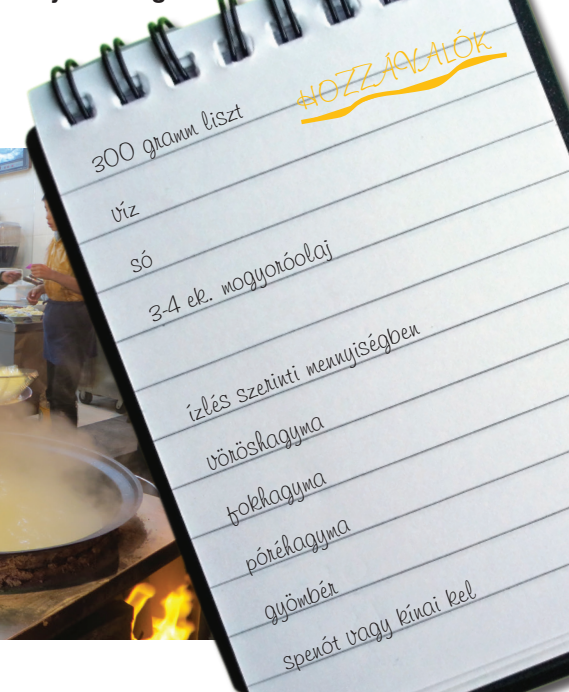 HOZZÁVALÓK
300 gramm liszt
víz
só
3-4 ek. mogyoróolaj
ízlés szerinti mennyiségben
vöröshagyma
fokhagyma
póréhagyma
gyömbér
spenót vagy kínai kel